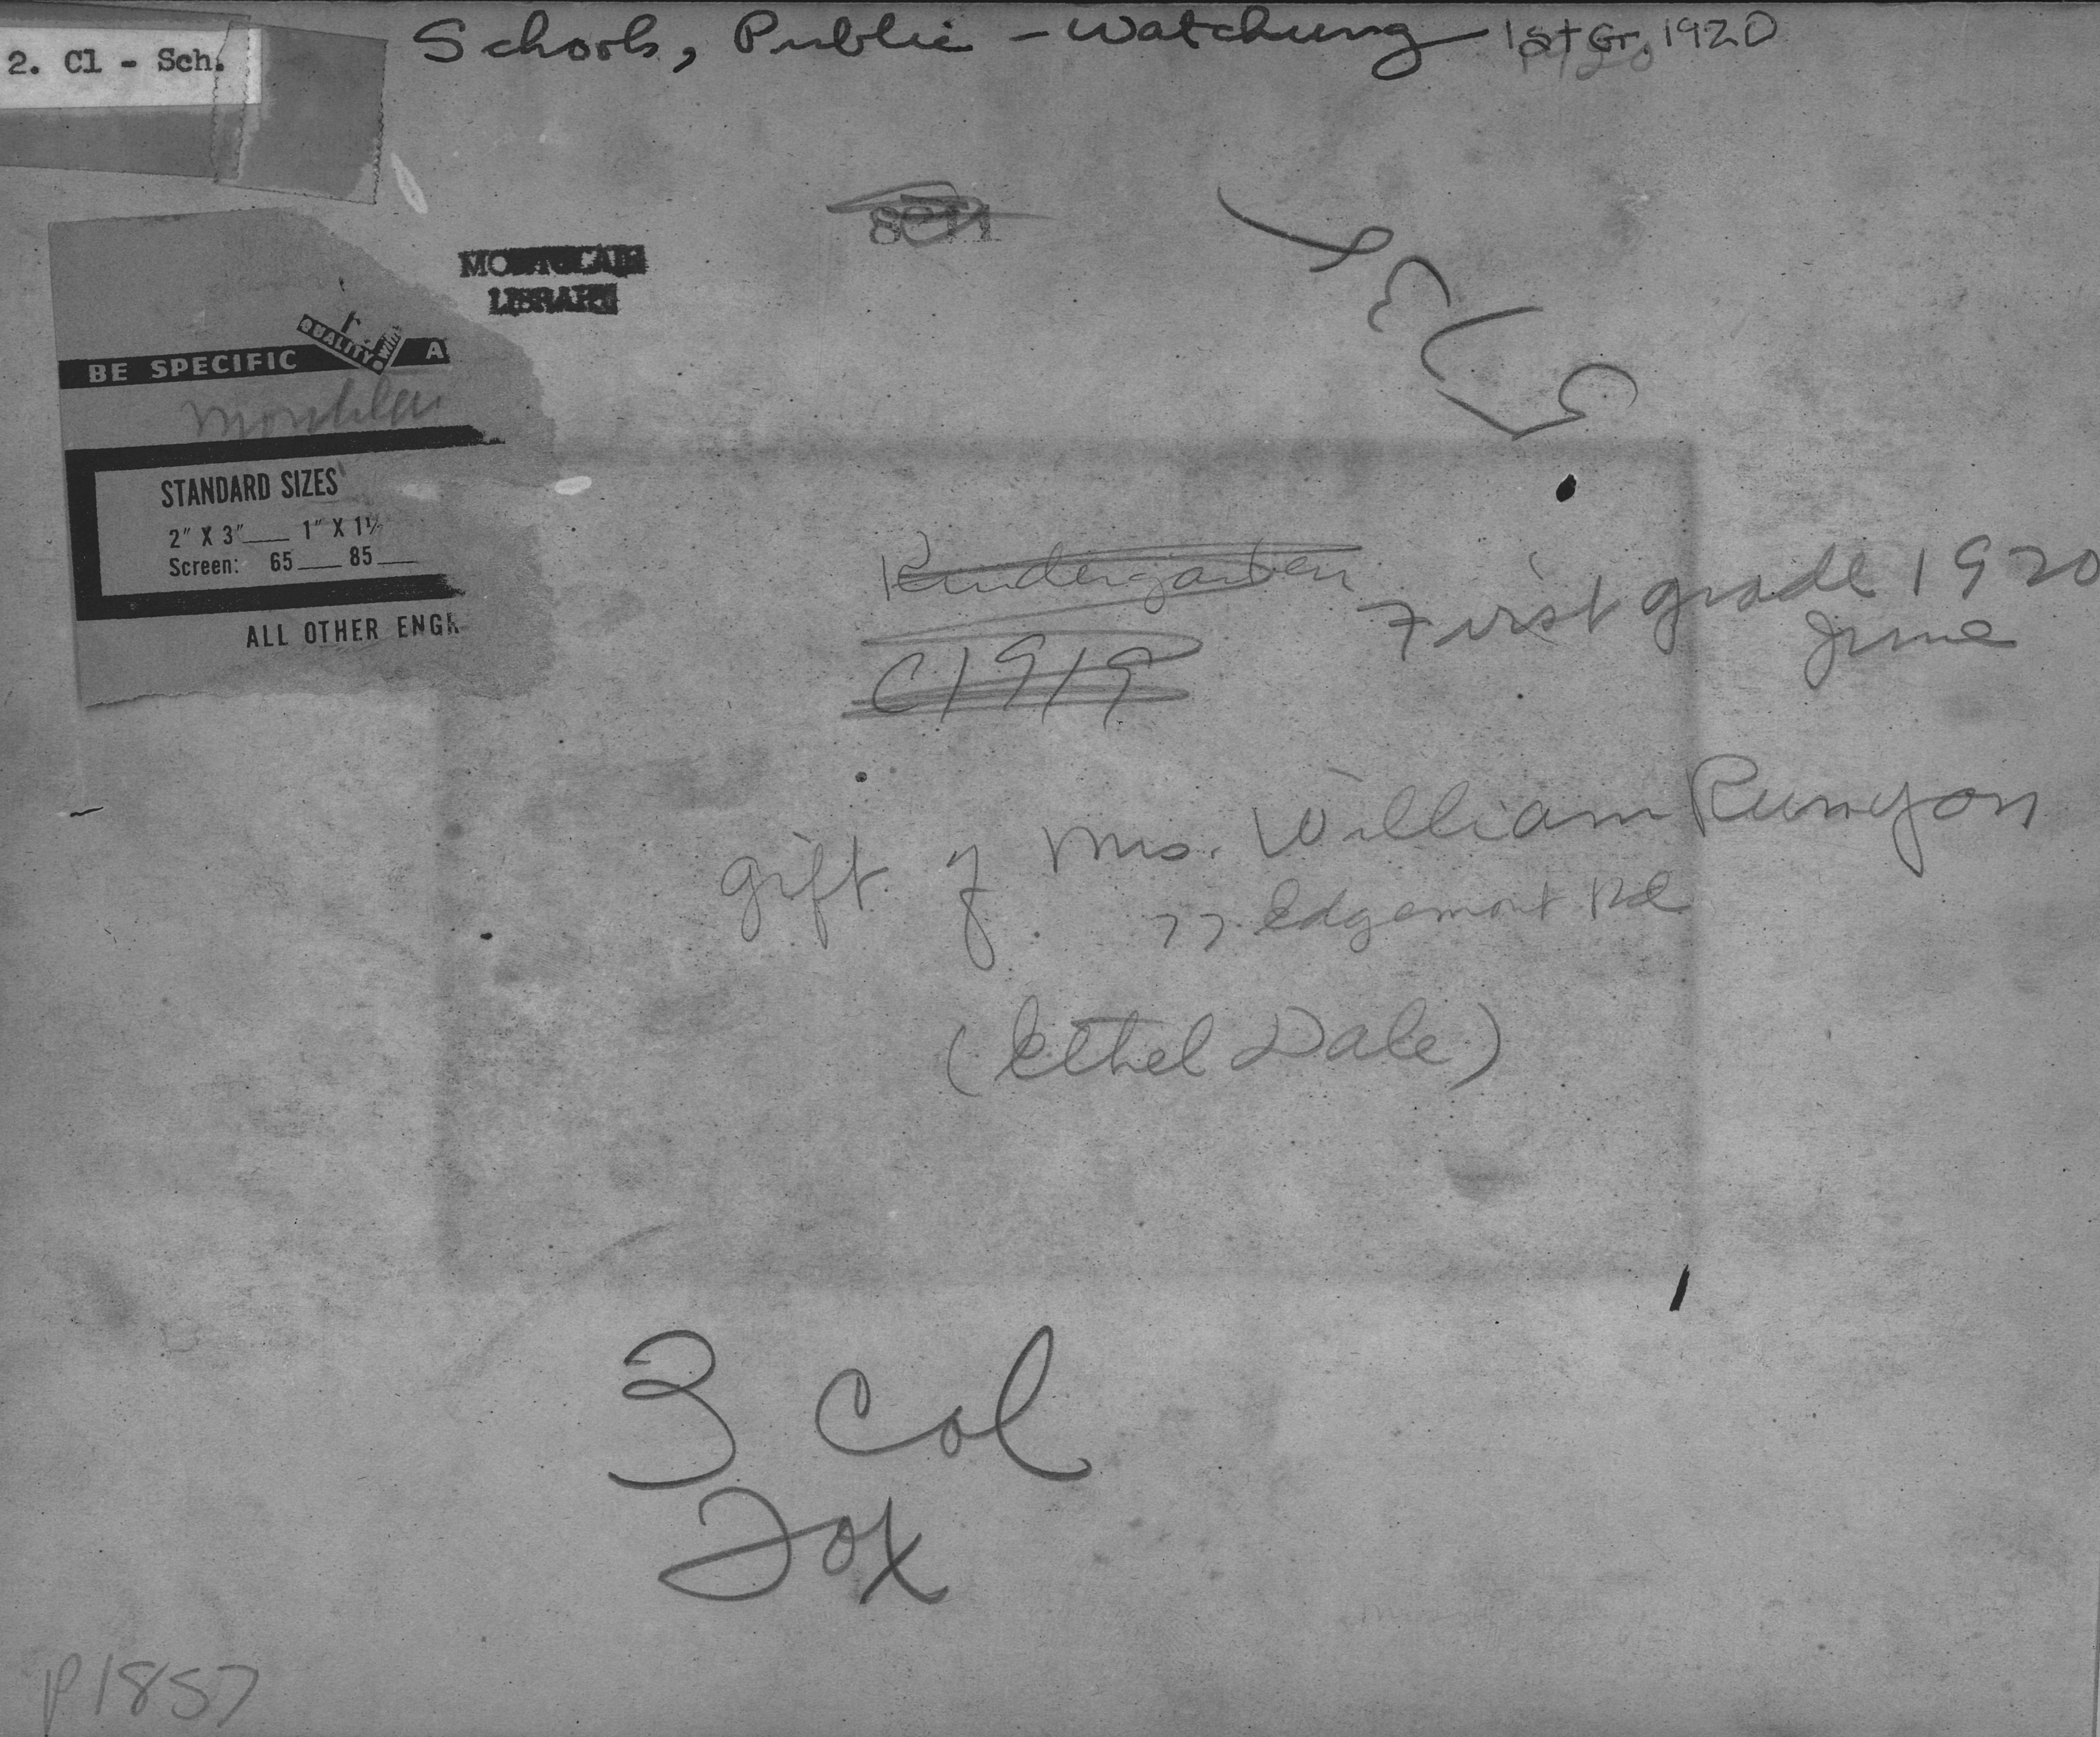 Schools, Public - Watchung 1st Gr. 1920
2. Cl - Sch.
MONTCLAIR
LIBRARY
QUALITY with
BE SPECIFIC A
STANDARD SIZES
2" X 3"___ 1" X 1½
Screen: 65___ 85___
ALL OTHER ENGR
Kindergarten
C1919
First grade 1920
June
gift of Mrs. William Runyon
77 Edgemont Rd
(Ethel Dale)
3 Col
P1857